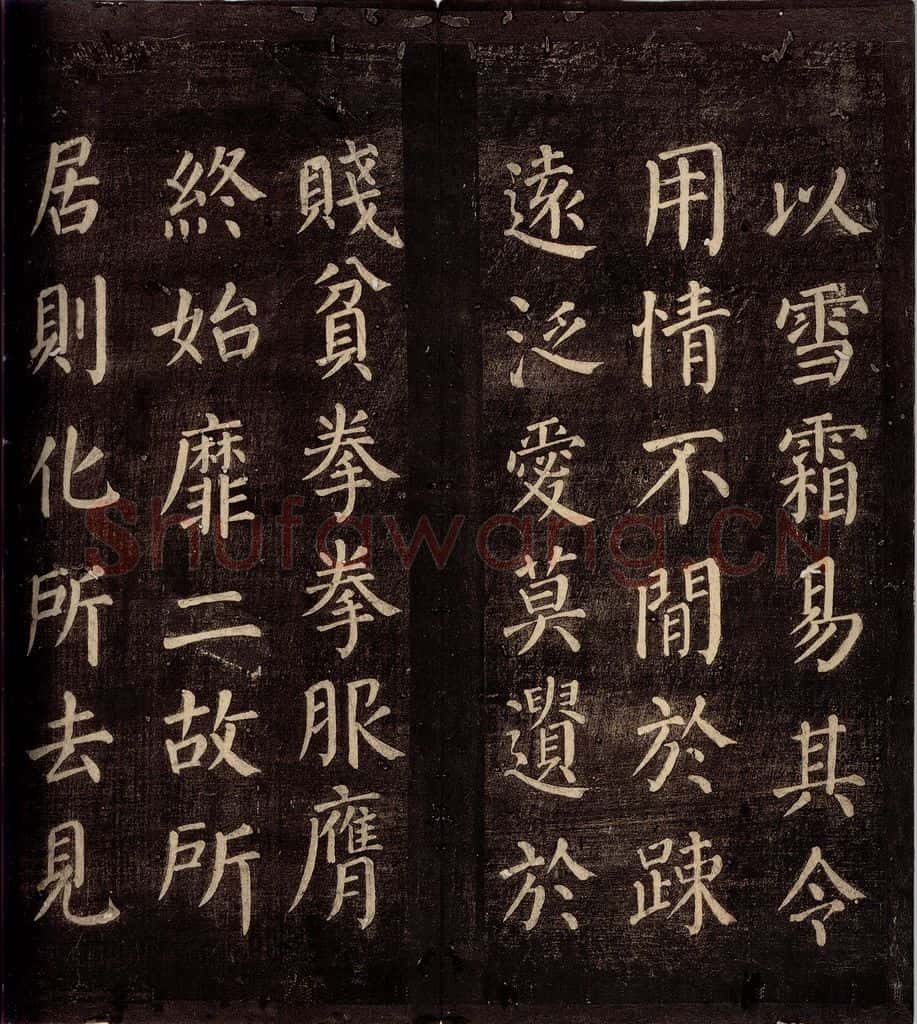 以雪霜易其令
用情不間於踈
遠泛愛莫遺於
賤貧拳拳服膺
終始靡二故所
居則化所去見
Shufawang.CN